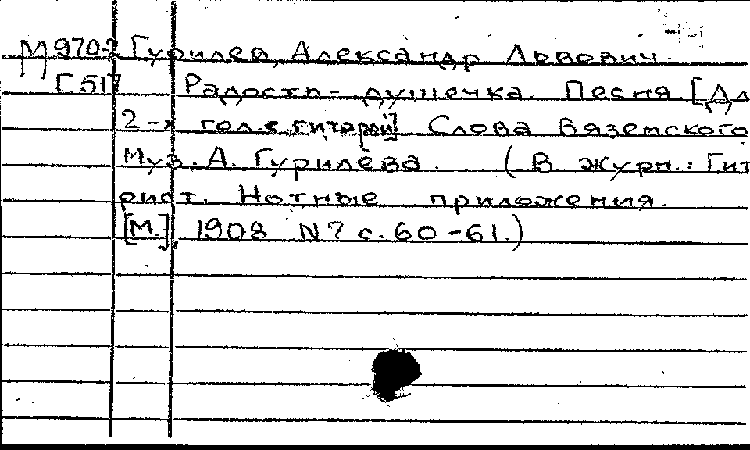 М 970-2 Гурилев, Александр Львович.
Г 517 Радость-душечка. Песня [Дл
2-х гол. с гитарой] Слова Вяземского
Муз. А. Гурилева. (В журн.: Гит
рист. Нотные приложения.
[М.], 1908 N7 с. 60-61.)